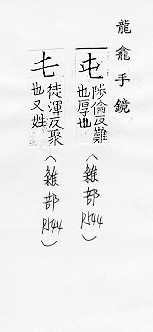 龍龕手鏡
屯 陟倫反難也厚也（雜部 P.544）
𡉏 徒渾反聚也又姓（雜部 P.544）